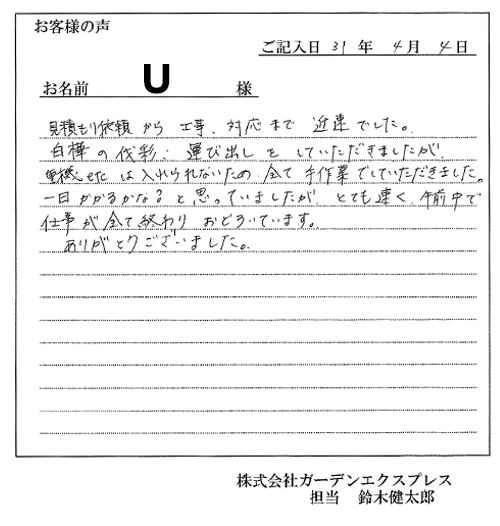 お客様の声
ご記入日 31 年 4 月 4 日
お名前 U 様
見積もり依頼から工事、対応まで迅速でした。
白樺の伐彩、運び出しをしていただきましたが、
重機etcは入れられないため、全て手作業でしていただきました。
一日かかるかなると思っていましたがとても速く、午前中で
仕事が全て終わりおどろいています。
ありがとうございました。
株式会社ガーデンエクスプレス
担当 鈴木健太郎